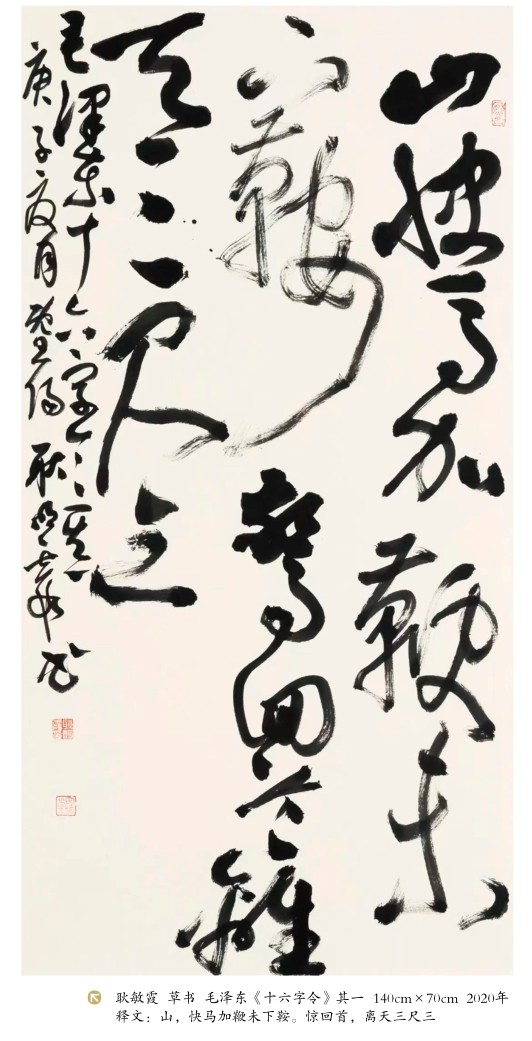 山快馬加鞭未
下鞍驚回首離
天三尺三
毛澤東十六字令其一
庚子夏月 耿敏霞書
耿敏霞 草书 毛泽东《十六字令》其一 140cm×70cm 2020年
释文：山，快马加鞭未下鞍。惊回首，离天三尺三